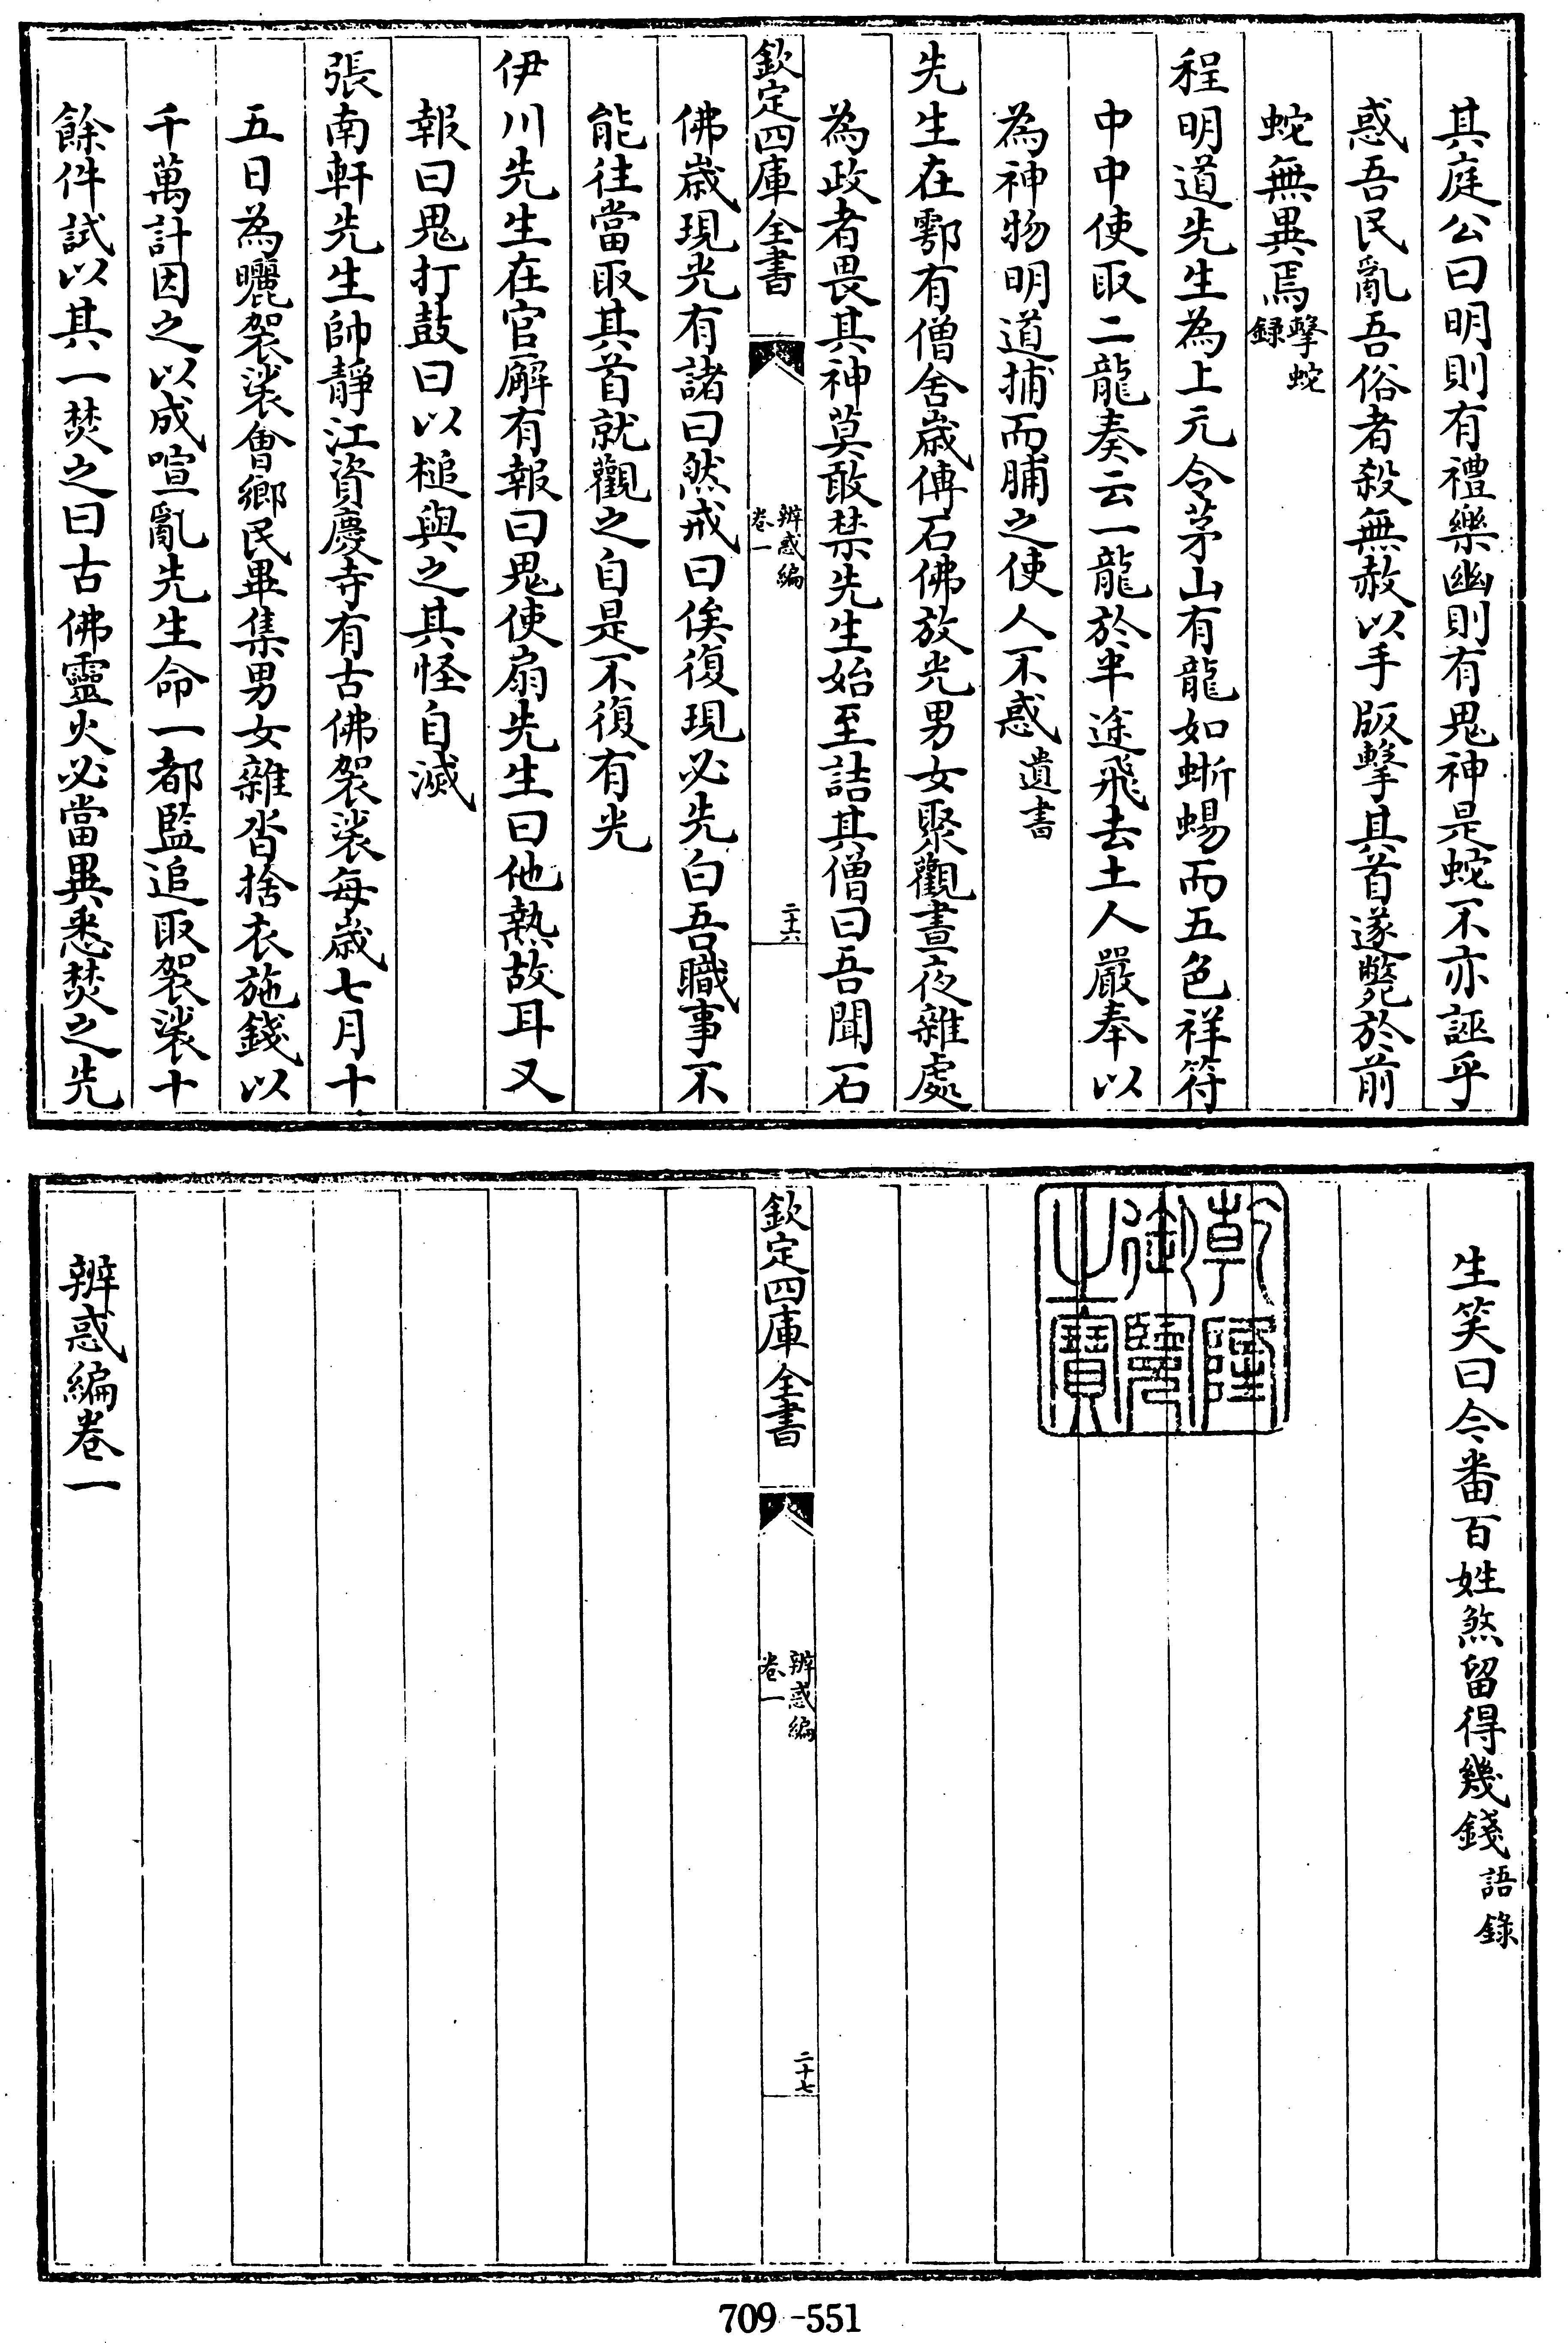 其庭公曰明則有禮樂幽則有鬼神是蛇不亦誣乎
惑吾民亂吾俗者殺無赦以手版擊其首遂斃於前
蛇無異焉擊蛇録
程明道先生為上元令茅山有龍如蜥蜴而五色祥符
中中使取二龍奏云一龍於半途飛去土人嚴奉以
為神物明道捕而脯之使人不惑遺書
先生在鄠有僧舍歲傳石佛放光男女聚觀晝夜雜處
為政者畏其神莫敢禁先生始至詰其僧曰吾聞石
欽定四庫全書
辨惑編
卷一
二十六
佛歲現光有諸曰然戒曰俟復現必先白吾職事不
能往當取其首就觀之自是不復有光
伊川先生在官廨有報曰鬼使扇先生曰他熱故耳又
報曰鬼打鼓曰以槌與之其怪自滅
張南軒先生帥靜江資慶寺有古佛袈裟每歲七月十
五日為曬袈裟會鄉民畢集男女雜沓捨衣施錢以
千萬計因之以成喧亂先生命一都監追取袈裟十
餘件試以其一焚之曰古佛靈火必當異悉焚之先
生笑曰今番百姓煞留得幾錢語錄
乾隆御覽之寶
欽定四庫全書
辨惑編
卷一
二十七
辨惑編卷一
709-551